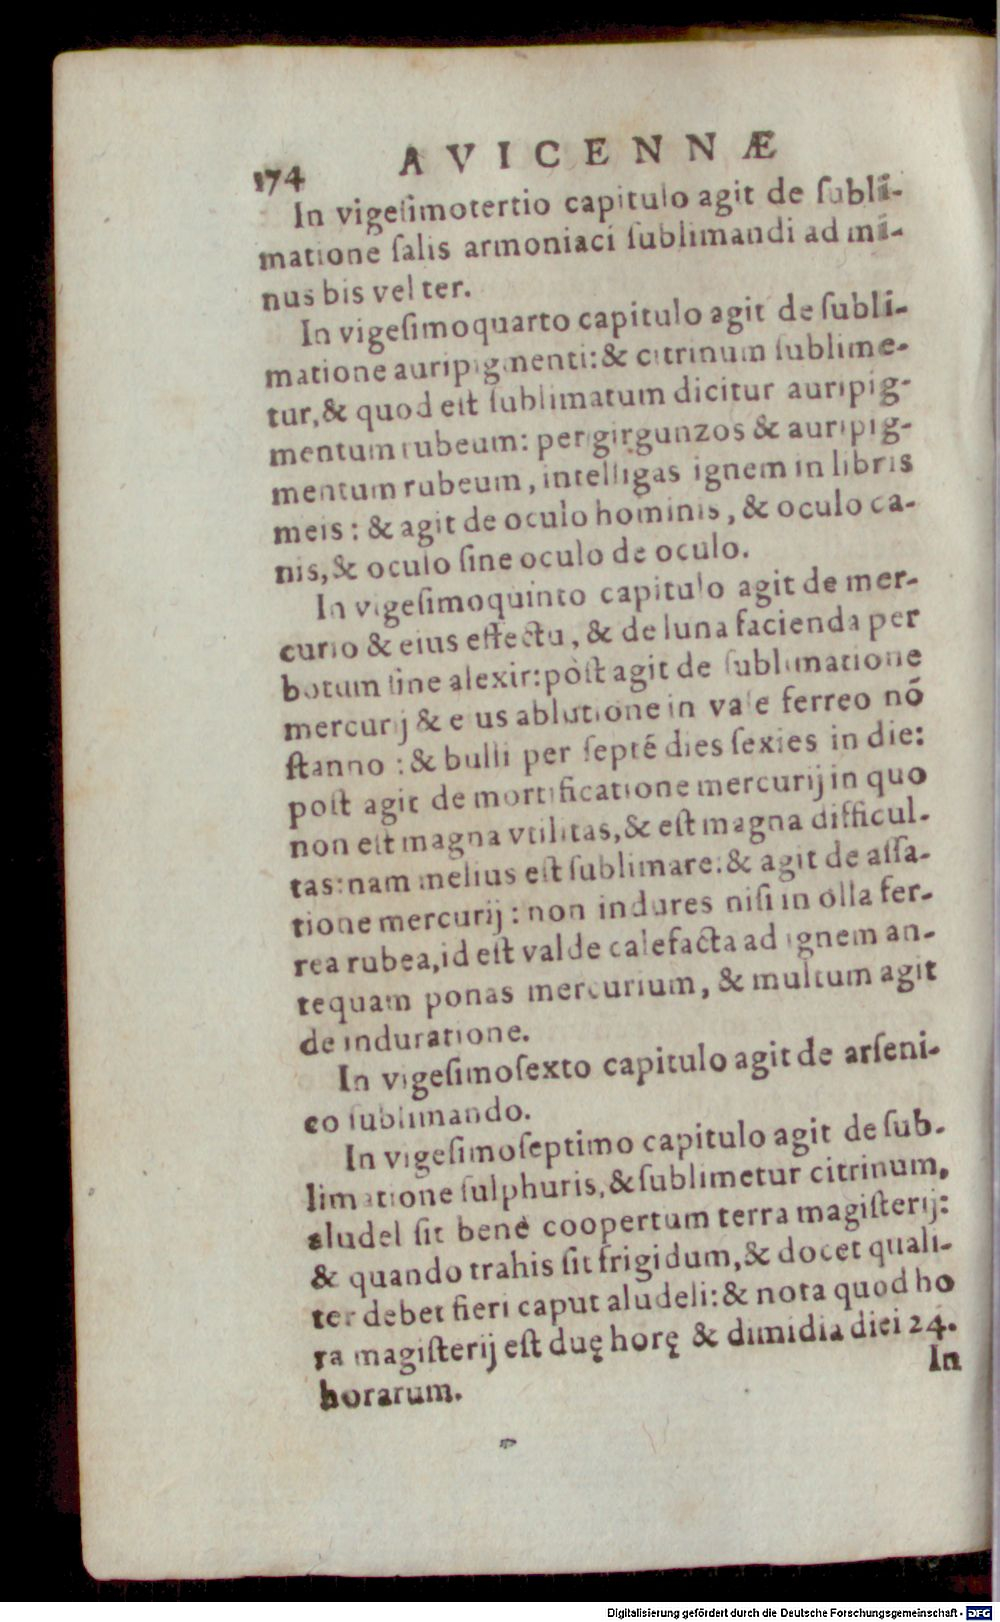 174 AVICENNÆ
In vigeſimotertio capitulo agit de ſubli-
matione ſalis armoniaci ſublimandi ad mi-
nus bis vel ter.
In vigeſimoquarto capitulo agit de ſubli-
matione auripigmenti:& citrinum ſublime-
tur,& quod eſt ſublimatum dicitur auripig-
mentum rubeum: per girgunzos & auripig-
mentum rubeum, intelligas ignem in libris
meis : & agit de oculo hominis, & oculo ca-
nis,& oculo ſine oculo de oculo.
In vigeſimoquinto capitulo agit de mer-
curio & eius effectu, & de luna facienda per
botum ſine alexir:pòſt agit de ſublimatione
mercurij & eius ablutione in vaſe ferreo nõ
ſtanno : & bulli per ſepté dies ſexies in die:
poſt agit de mortificatione mercurij in quo
non eſt magna vtilitas,& eſt magna difficul-
tas: nam melius eſt ſublimare: & agit de aſſa-
tione mercurij : non indures niſi in olla fer-
rea rubea,id eſt valde calefacta ad ignem an-
tequam ponas mercurium, & multum agit
de induratione.
In vigeſimoſexto capitulo agit de arſeni-
co ſublimando.
In vigeſimoſeptimo capitulo agit de ſub-
limatione ſulphuris,& ſublimetur citrinum,
aludel ſit benè coopertum terra magiſterij:
& quando trahis ſit frigidum,& docet quali-
ter debet fieri caput aludeli:& nota quod ho
ra magiſterij eſt duę horę & dimidia diei 24.
horarum.
In
Digitalisierung gefördert durch die Deutsche Forschungsgemeinschaft - DFG